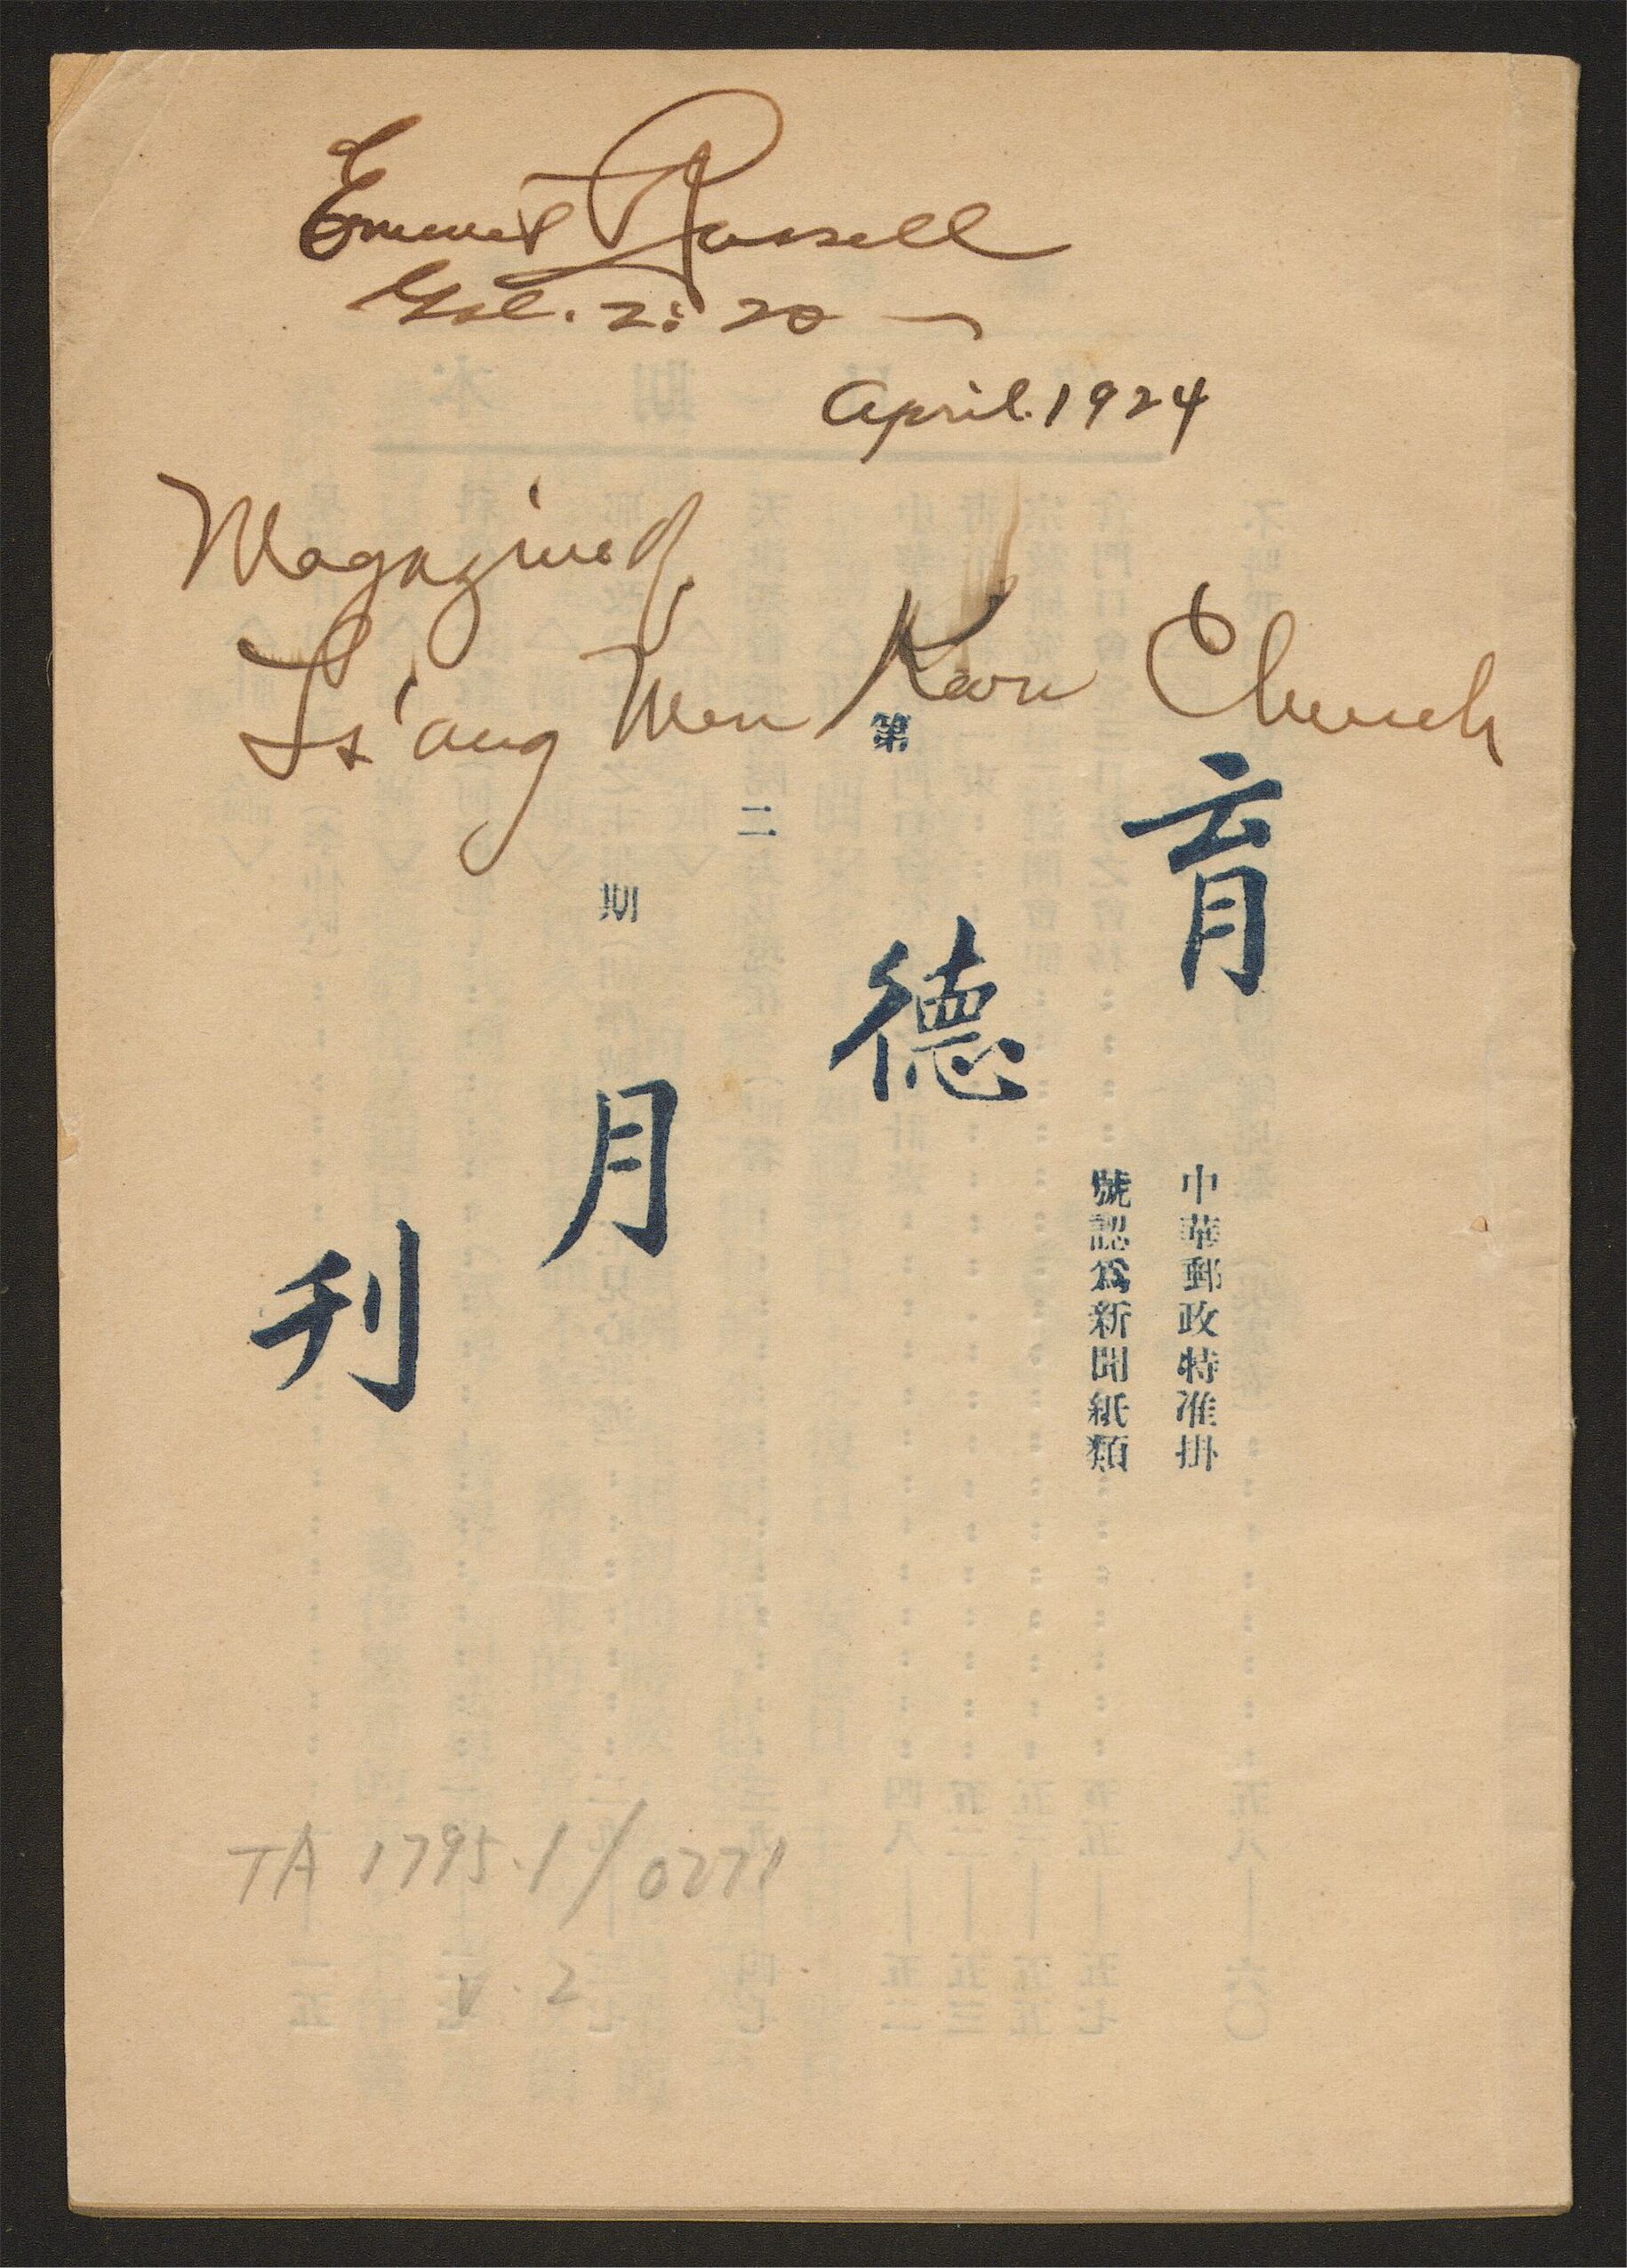 Emmet Russell
Gal. 2:20 —
April. 1924
Magazine of
Ts'ang Men Kow Church
第二期
育德月刊
中華郵政特准掛
號認爲新聞紙類
TA 1795.1/0271
v. 2